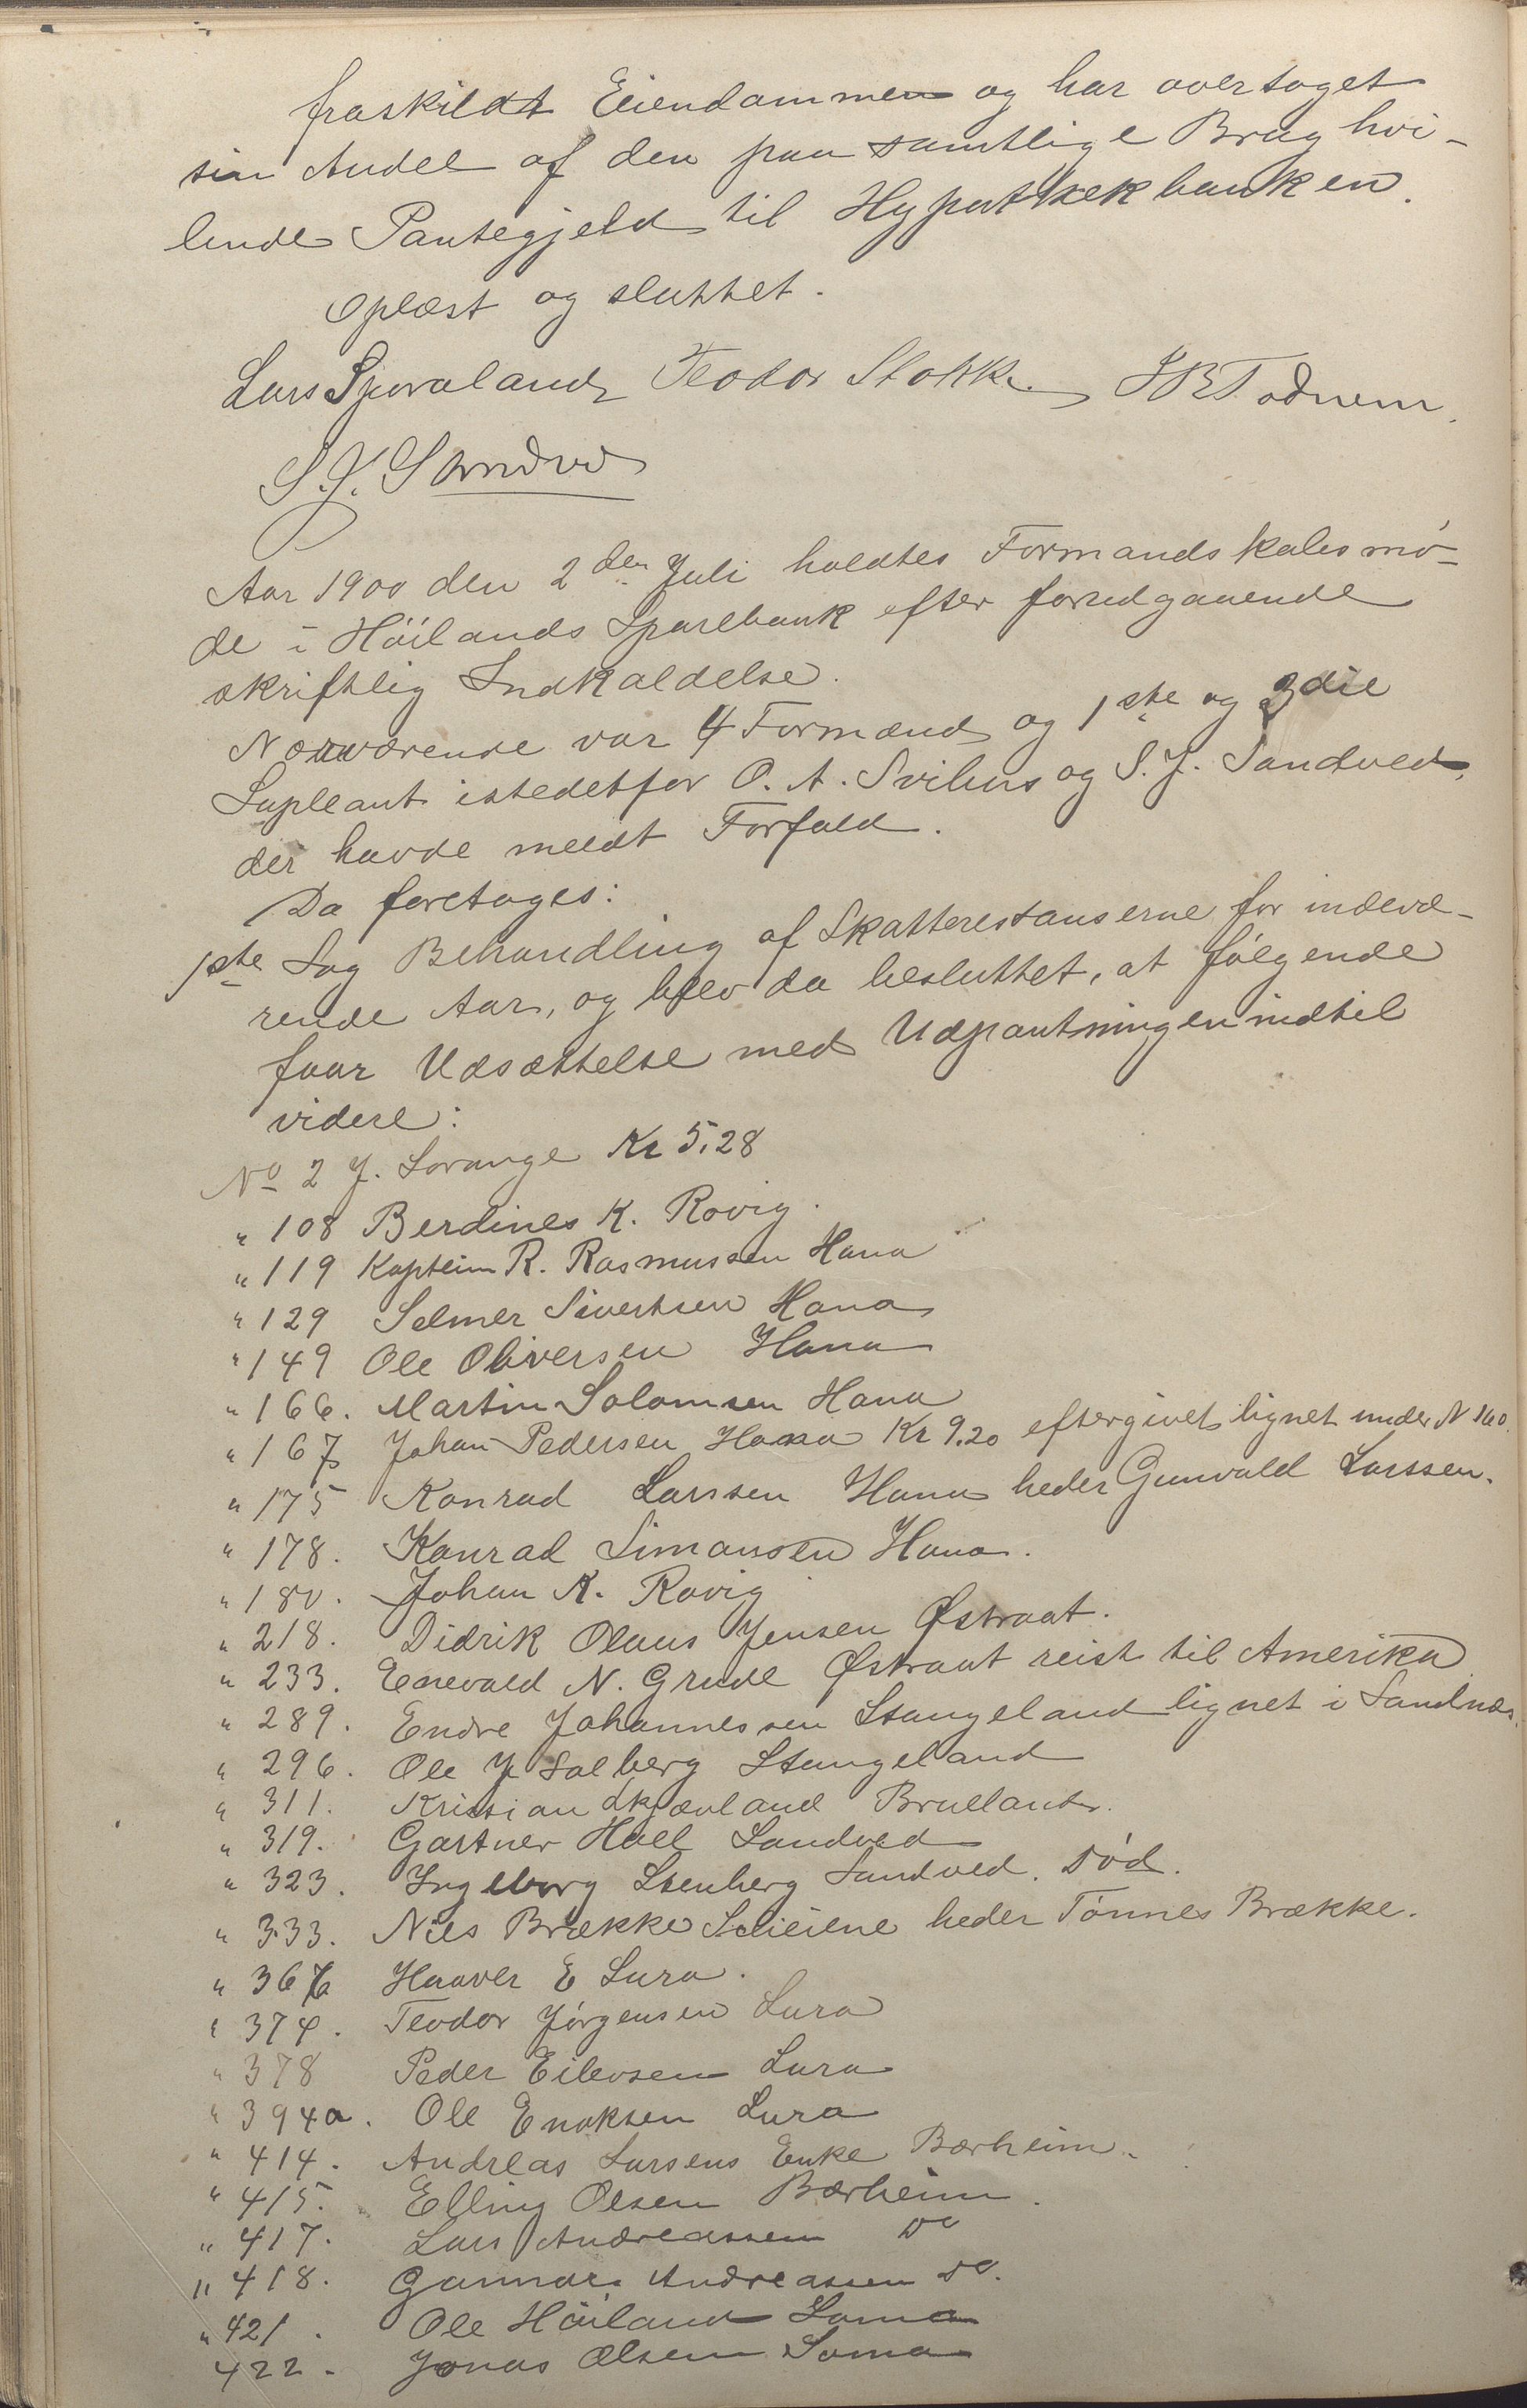 fraskildt Eiendammen og har overtaget
sin Andel af den paa samtlige Brug hvi-
lende Pantegjeld til Hypothekbanken.
Oplæst og sluttet.
Lars Sporaland Teodor Stokke T Todnem.
S. J. Sandve
Aar 1900 den 2den Juli holdtes Formandskabsmø-
de i Höilands Sparebank efter forudgaaende
skriftlig Indkaldelse.
Nærværende var 4 Formænd og 1ste og 3die
Supleant istedetfor O. A. Svihus og S. J. Sandved,
der havde meldt Forfald.
Da foretoges:
1ste Sag Behandling af Skatterestanserne for indevæ-
rende Aar, og blev da besluttet, at følgende
faar Udsættelse med Udpantningen indtil
videre:
No 2 J. Lorange Kr 5,28
" 108 Berdines K. Rovig.
" 119 Kaptein R. Rasmussen Hana
" 129 Selmer Sivertsen Hana
" 149 Ole Oliversen Hana
" 166. Martin Salomsen Hana
" 167 Johan Pedersen Hana Kr 9.20 eftergivet lignet under N 160.
" 175 Konrad Larssen Hana heder Gunvald Larssen.
" 178. Konrad Simonsen Hana.
" 180. Johan K. Rovig
" 218. Didrik Olaus Jensen Østraat.
" 233. Enevald N. Grude Østraat reist til Amerika
" 289. Endre Johannessen Stangeland lignet i Sandnæs.
" 296. Ole J Solberg Stangeland
" 311. Kristian Skjævland Brueland.
" 319. Gartner Hall Sandved
" 323. Ingeborg Stenberg Sandved. Død.
" 333. Nils Brække Skeiene heder Tønnes Brække.
" 367 Haaver E Lura.
" 374. Teodor Jørgensen Lura
" 378 Peder Eilevsen Lura
" 394a. Ole Enoksen Lura
" 414. Andreas Larsens Enke Bærheim.
" 415. Elling Olsen Bærheim.
" 417. Lars Andreassen Do
" 418. Gunnar Andreassen Do.
" 421. Ole Höiland Soma
422. Jonas Olsen Soma